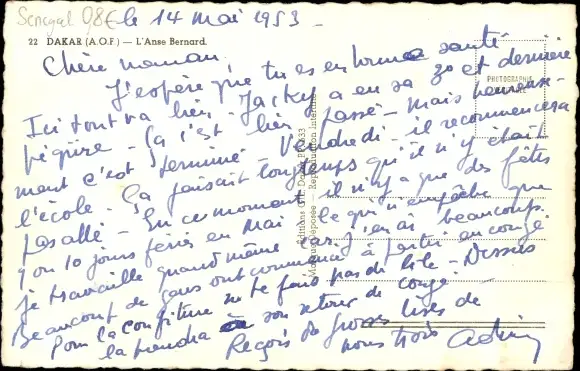 Senegal 08€ le 14 mai 1953 -
22 DAKAR (A.O.F.) — L'Anse Bernard.
Chère maman,
J'espère que tu es en bonne santé
Ici tout va bien. Jacky a eu sa 3e et dernière
piqûre - ça s'est bien passé - mais heureuse-
ment c'est terminé - Vendredi - il recommencera
l'école. Ça faisait longtemps qu'il n'y était
pas allé - En ce moment il n'y a que des fêtes
9 ou 10 jours fériés en mai. Ce qui n'empêche que
je travaille quand même car j'en ai beaucoup.
Beaucoup de gens ont commencé à partir en congé.
Pour la confiture ne te fais pas de bile - Dessus
la prendra à son retour de congé.
Reçois de grosses bises de
nous trois
PHOTOGRAPHIE
Editions
Marque Déposée — Reproduction Interdite